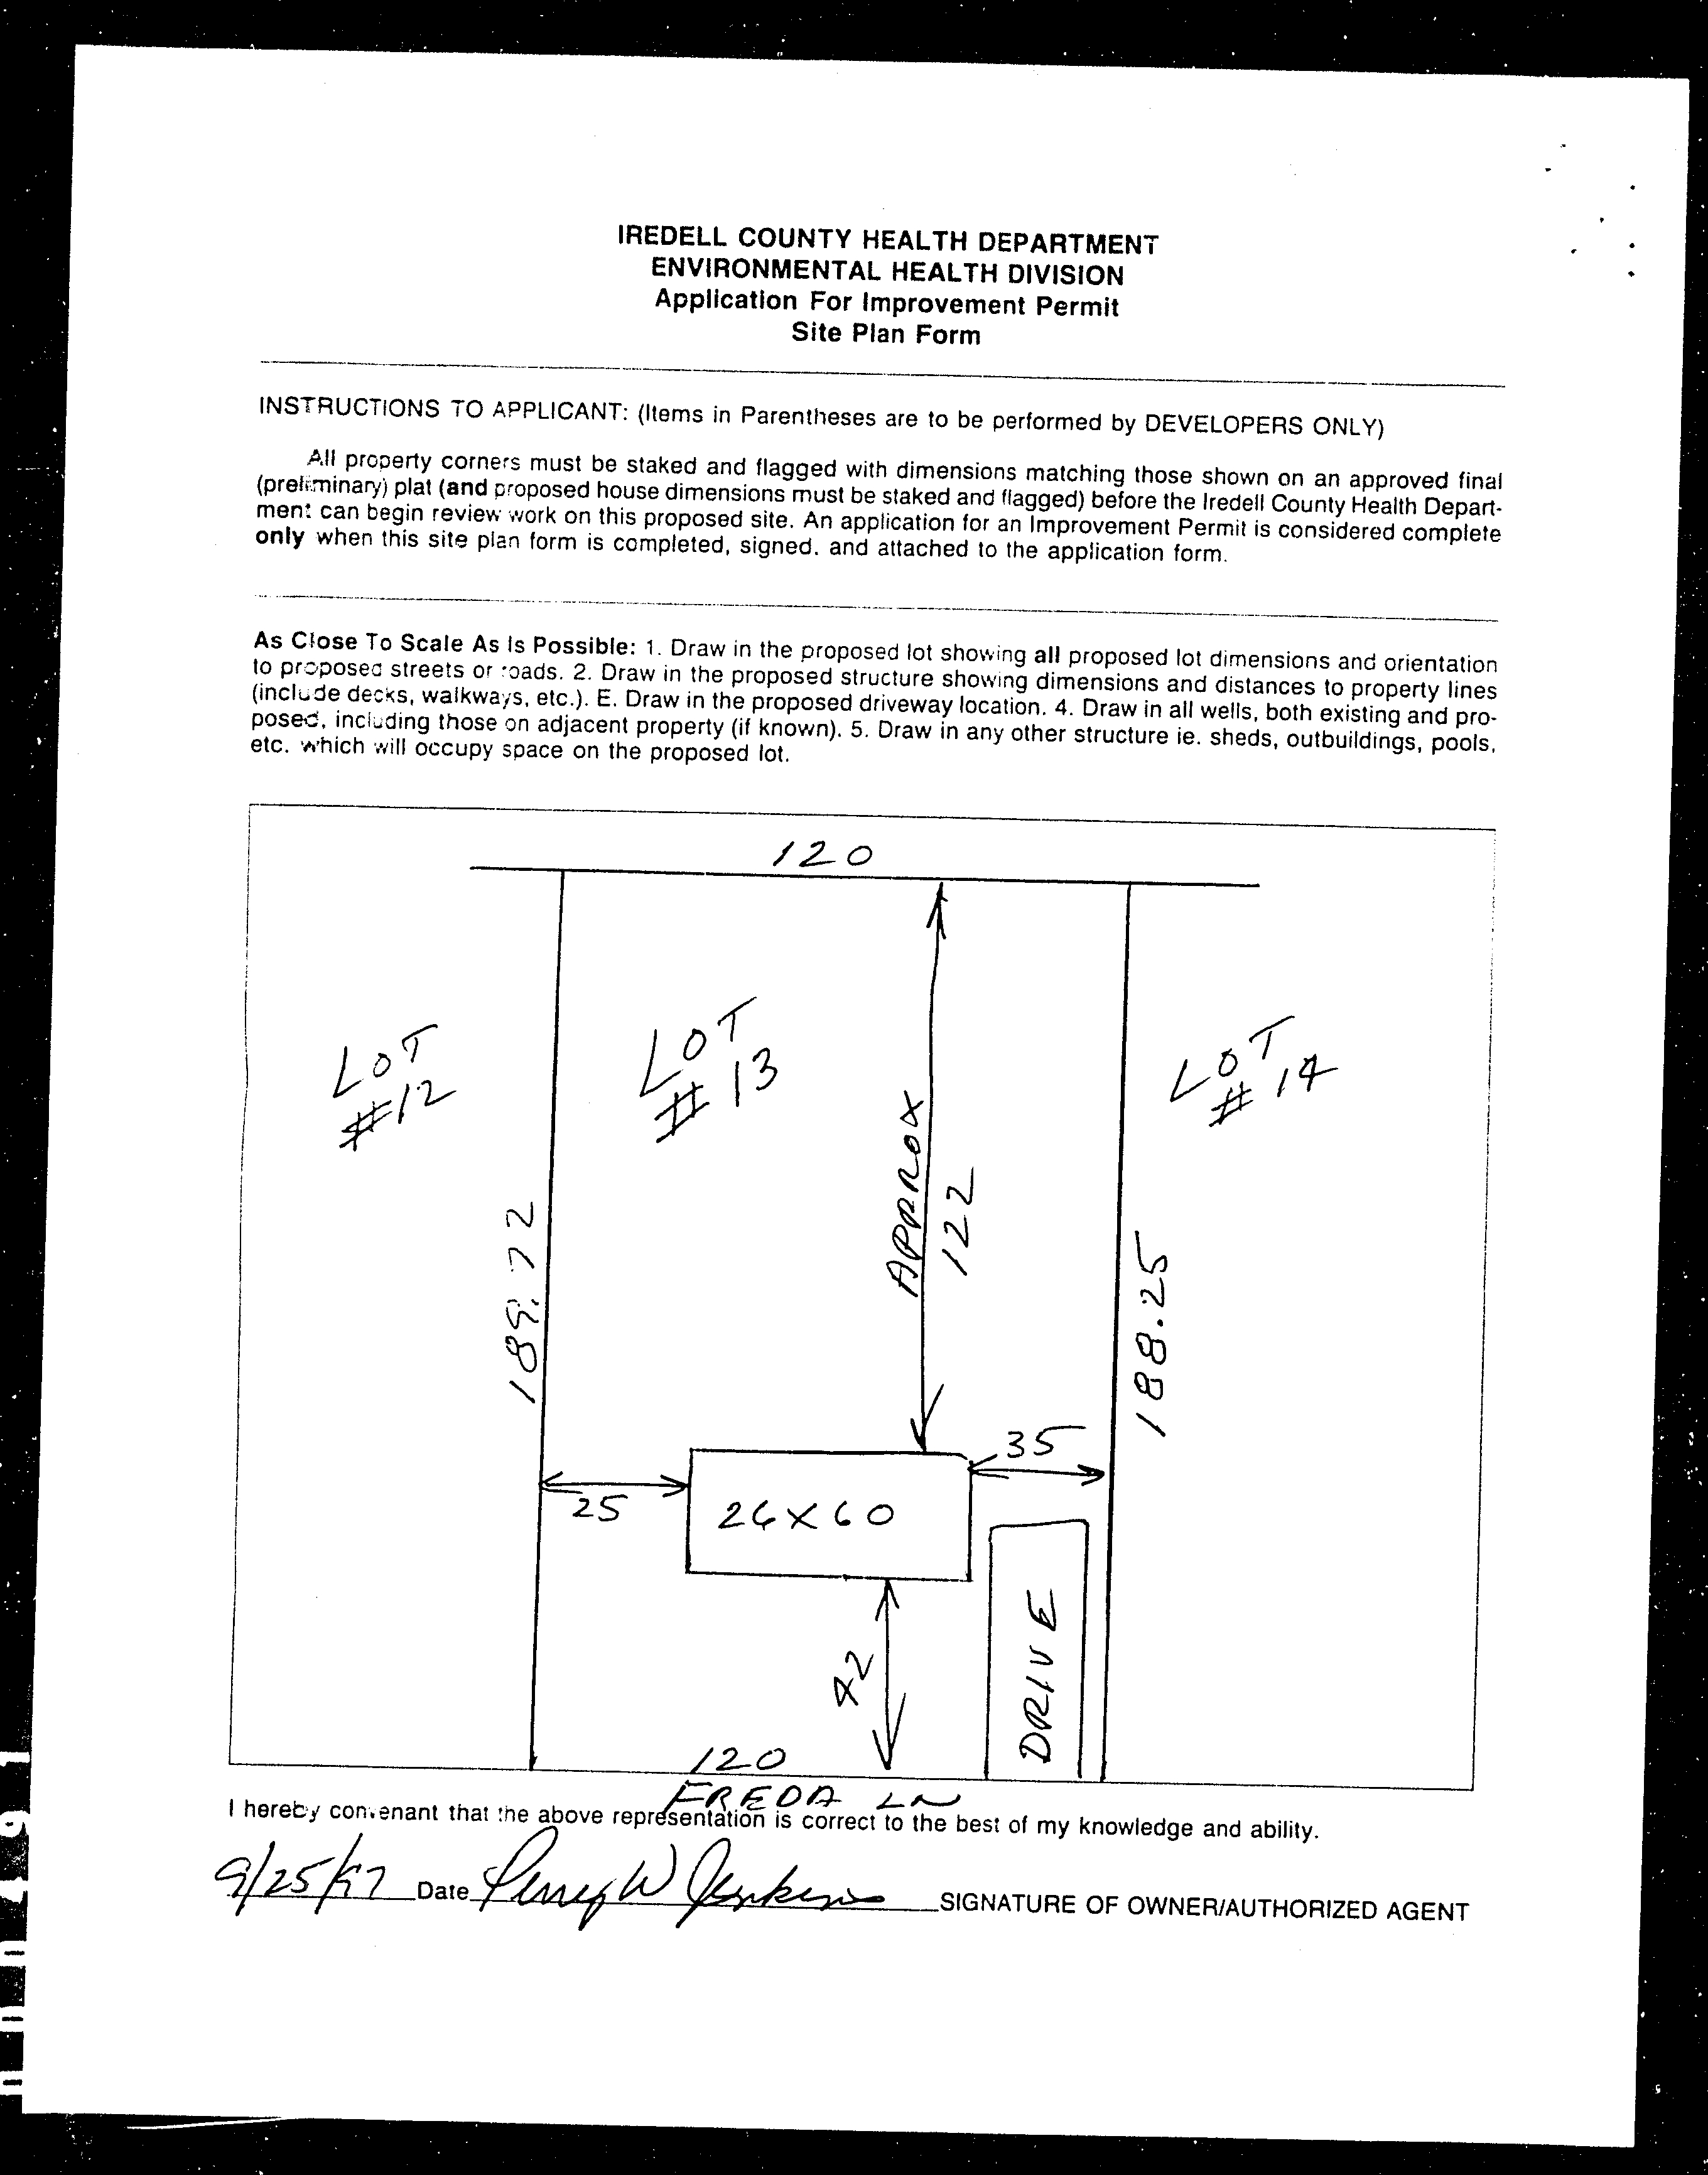 IREDELL COUNTY HEALTH DEPARTMENT
ENVIRONMENTAL HEALTH DIVISION
Application For Improvement Permit
Site Plan Form
INSTRUCTIONS TO APPLICANT: (Items in Parentheses are to be performed by DEVELOPERS ONLY)
All property corners must be staked and flagged with dimensions matching those shown on an approved final
(preliminary) plat (and proposed house dimensions must be staked and flagged) before the Iredell County Health Depart-
ment can begin review work on this proposed site. An application for an Improvement Permit is considered complete
only when this site plan form is completed, signed. and attached to the application form.
As Close To Scale As Is Possible: 1. Draw in the proposed lot showing all proposed lot dimensions and orientation
to proposed streets or roads. 2. Draw in the proposed structure showing dimensions and distances to property lines
(include decks, walkways, etc.). E. Draw in the proposed driveway location. 4. Draw in all wells, both existing and pro-
posed, including those on adjacent property (if known). 5. Draw in any other structure ie. sheds, outbuildings, pools,
etc. which will occupy space on the proposed lot.
120
LOT
#12
LOT
# 13
LOT
# 14
APPROX
122
189.72
188.25
35
25
26 X 60
42
DRIVE
120
FREDA LN
I hereby convenant that the above representation is correct to the best of my knowledge and ability.
9/25/97 Date Perry W Jenkins SIGNATURE OF OWNER/AUTHORIZED AGENT